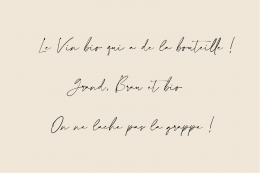 Le Vin bio qui a de la bouteille !
Grand, Brau et bio
On ne lache pas la grappe !